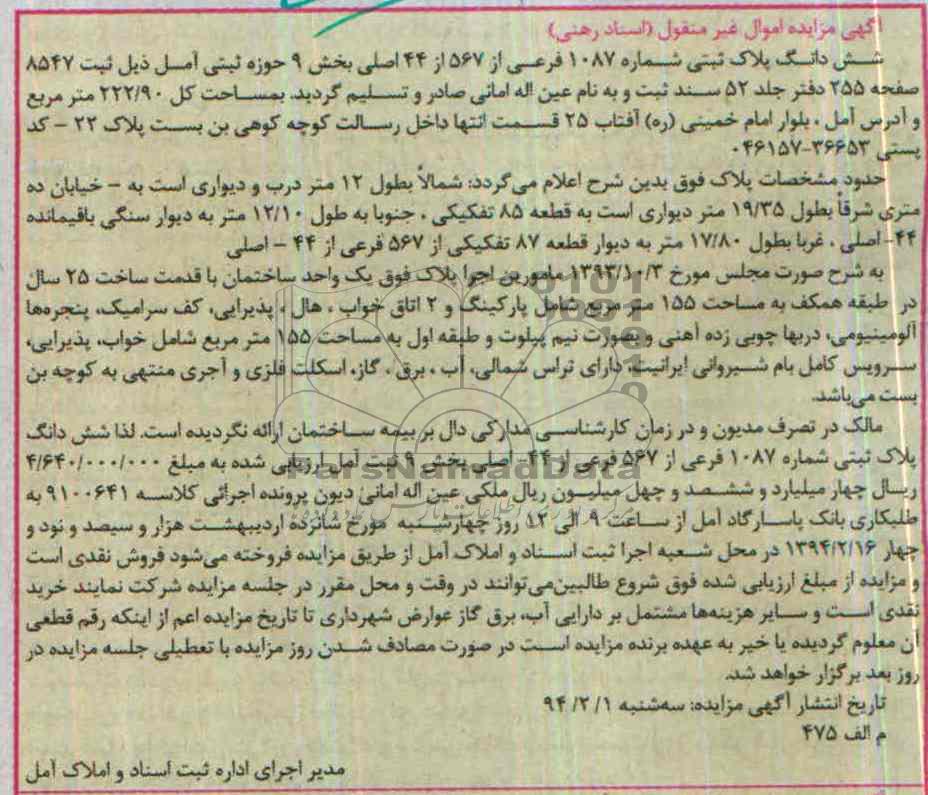 آگهی مزایده اموال غیر منقول (اسناد رهنی)
شش دانگ پلاک ثبتی شماره ۱۰۸۷ فرعی از ۵۶۷ از ۴۴ اصلی بخش ۹ حوزه ثبتی آمل ذیل ثبت ۸۵۴۷
صفحه ۲۵۵ دفتر جلد ۵۲ سند ثبت و به نام عین اله امانی صادر و تسلیم گردید. بمساحت کل ۲۲۲/۹۰ متر مربع
و آدرس آمل ، بلوار امام خمینی (ره) آفتاب ۲۵ قسمت انتها داخل رسالت کوچه کوهی بن بست پلاک ۲۲ - کد
پستی ۳۶۶۵۳-۰۴۶۱۵۷
حدود مشخصات پلاک فوق بدین شرح اعلام می‌گردد: شمالاً بطول ۱۲ متر درب و دیواری است به - خیابان ده
متری شرقاً بطول ۱۹/۳۵ متر دیواری است به قطعه ۸۵ تفکیکی ، جنوبا به طول ۱۲/۱۰ متر به دیوار سنگی باقیمانده
۴۴- اصلی ، غربا بطول ۱۷/۸۰ متر به دیوار قطعه ۸۷ تفکیکی از ۵۶۷ فرعی از ۴۴ - اصلی
به شرح صورت مجلس مورخ ۱۳۹۳/۱۰/۳ مامورین اجرا پلاک فوق یک واحد ساختمان با قدمت ساخت ۲۵ سال
در طبقه همکف به مساحت ۱۵۵ متر مربع شامل پارکینگ و ۲ اتاق خواب ، هال ، پذیرایی، کف سرامیک، پنجره‌ها
آلومینیومی، دربها چوبی زده آهنی و بصورت نیم پیلوت و طبقه اول به مساحت ۱۵۵ متر مربع شامل خواب، پذیرایی،
سرویس کامل بام شیروانی ایرانیت، دارای تراس شمالی، آب ، برق ، گاز، اسکلت فلزی و آجری منتهی به کوچه بن
بست می‌باشد.
مالک در تصرف مدیون و در زمان کارشناسی مدارکی دال بر بیمه ساختمان ارائه نگردیده است. لذا شش دانگ
پلاک ثبتی شماره ۱۰۸۷ فرعی از ۵۶۷ فرعی از ۴۴- اصلی بخش ۹ ثبت آمل ارزیابی شده به مبلغ ۴/۶۴۰/۰۰۰/۰۰۰
ریال چهار میلیارد و ششصد و چهل میلیون ریال ملکی عین اله امانی دیون پرونده اجرائی کلاسه ۹۱۰۰۶۴۱ به
طلبکاری بانک پاسارگاد آمل از ساعت ۹ الی ۱۲ روز چهارشنبه مورخ شانزده اردیبهشت هزار و سیصد و نود و
چهار ۱۳۹۴/۲/۱۶ در محل شعبه اجرا ثبت اسناد و املاک آمل از طریق مزایده فروخته می‌شود فروش نقدی است
و مزایده از مبلغ ارزیابی شده فوق شروع طالبین‌می‌توانند در وقت و محل مقرر در جلسه مزایده شرکت نمایند خرید
نقدی است و سایر هزینه‌ها مشتمل بر دارایی آب، برق گاز عوارض شهرداری تا تاریخ مزایده اعم از اینکه رقم قطعی
آن معلوم گردیده یا خیر به عهده برنده مزایده است در صورت مصادف شدن روز مزایده با تعطیلی جلسه مزایده در
روز بعد برگزار خواهد شد.
تاریخ انتشار آگهی مزایده: سه‌شنبه ۱/ ۲/ ۹۴
م الف ۴۷۵
مدیر اجرای اداره ثبت اسناد و املاک آمل
ParsNamadData